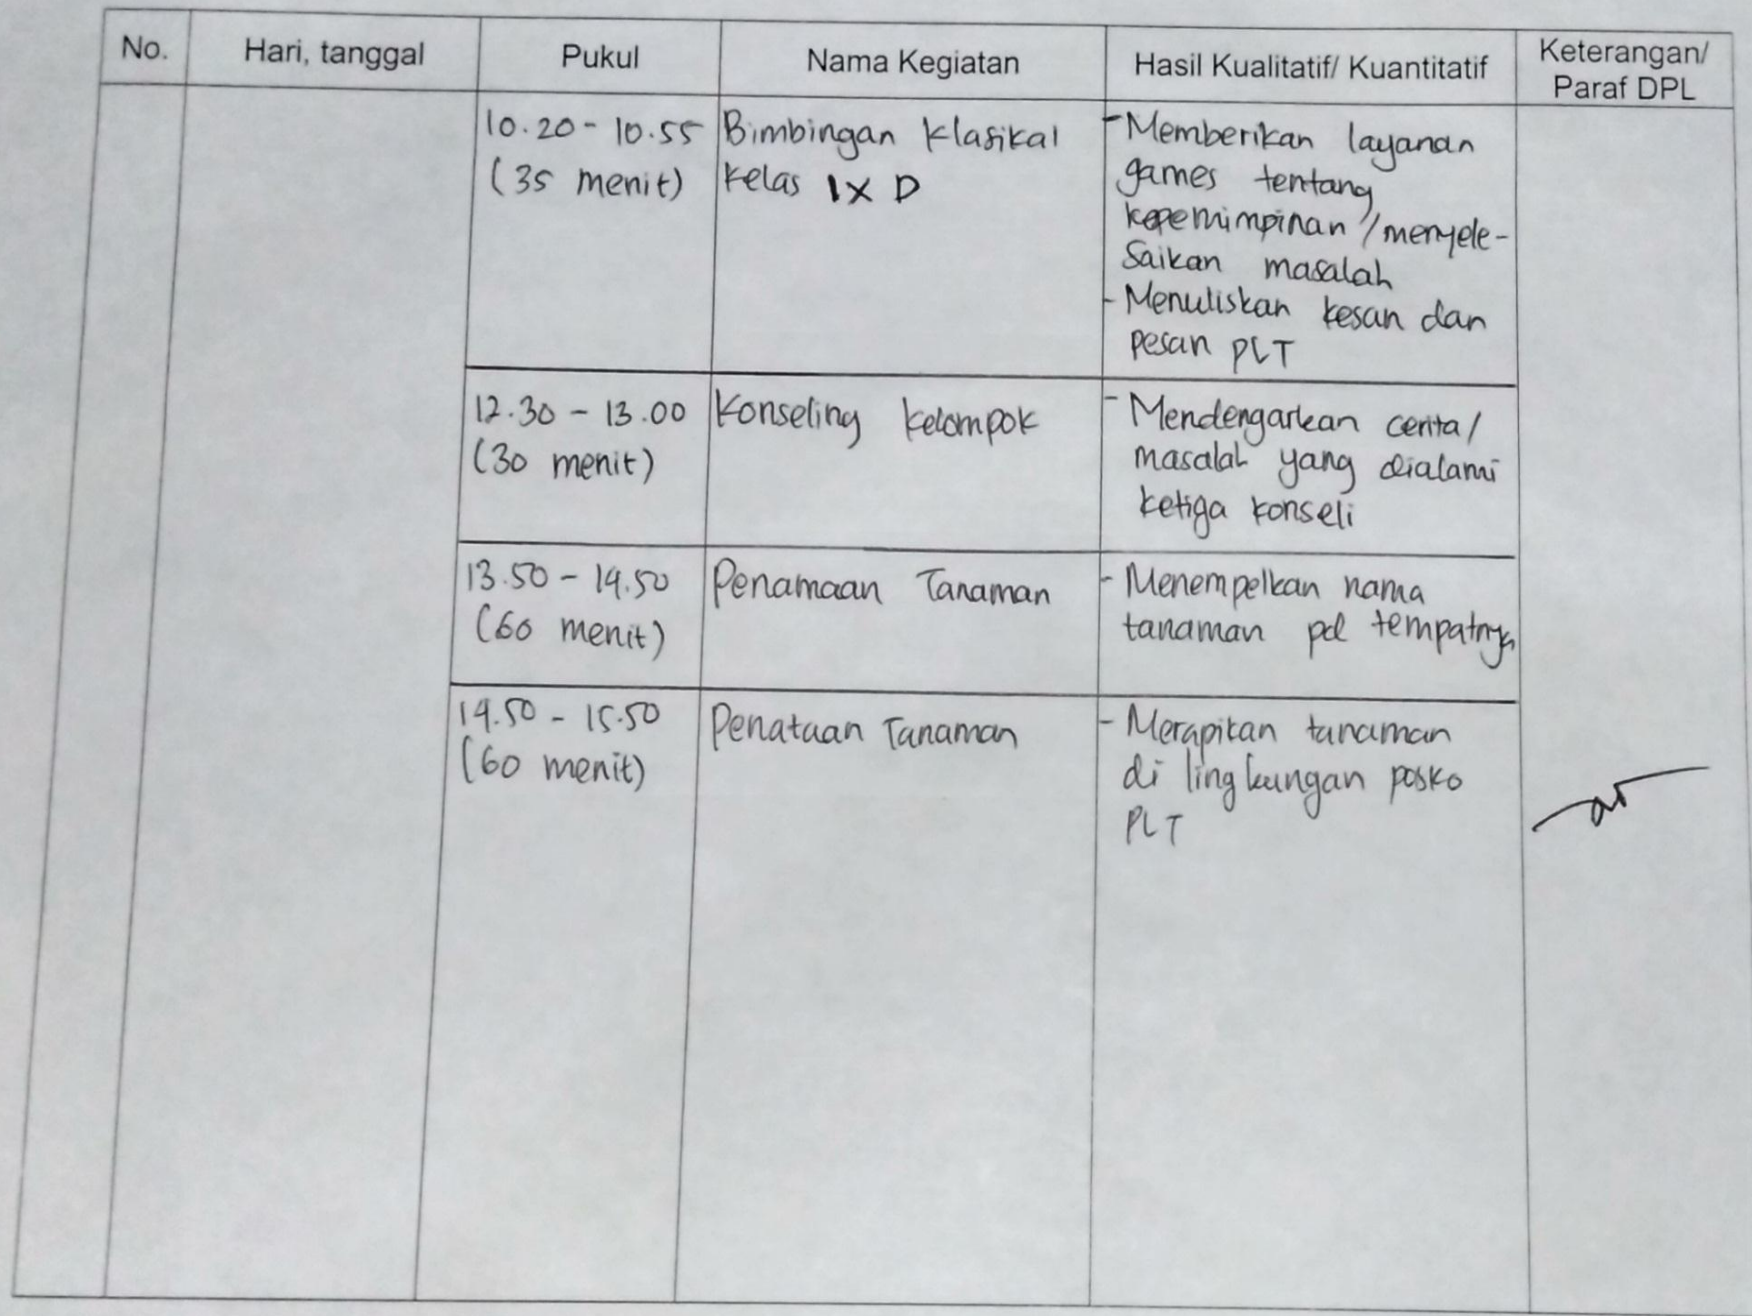 No. Hari, tanggal Pukul Nama Kegiatan Hasil Kualitatif/ Kuantitatif Keterangan/
Paraf DPL
10.20 - 10.55 Bimbingan Klasikal - Memberikan layanan
(35 menit) Kelas IX D games tentang
kepemimpinan / menyele-
saikan masalah
- Menuliskan kesan dan
pesan PLT
12.30 - 13.00 Konseling Kelompok - Mendengarkan cerita/
(30 menit) masalah yang dialami
ketiga konseli
13.50 - 14.50 Penamaan Tanaman - Menempelkan nama
(60 menit) tanaman pd tempatnya
14.50 - 15.50 Penataan Tanaman - Merapikan tanaman
(60 menit) di lingkungan posko
PLT